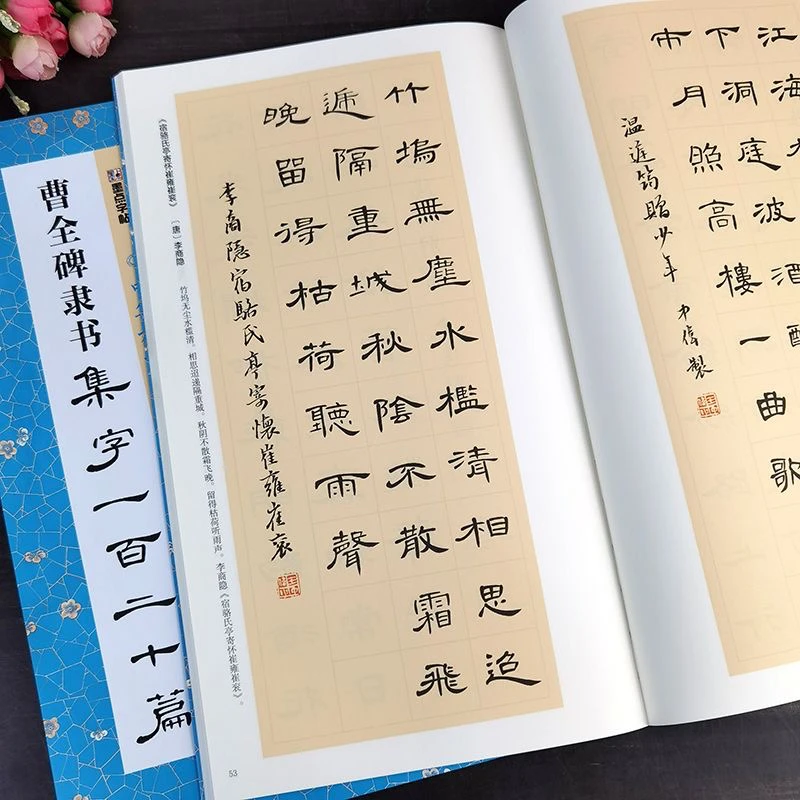 墨点字帖
曹全碑隶书集字一百二十篇
竹塢無塵水檻清相思迢
遞隔重城秋陰不散霜飛
晚留得枯荷聽雨聲
李商隐宿駱氏亭寄懷崔雍崔衮
《宿骆氏亭寄怀崔雍崔衮》 〔唐〕李商隐
竹坞无尘水槛清。相思迢递隔重城。秋阴不散霜飞晚。留得枯荷听雨声。李商隐《宿骆氏亭寄怀崔雍崔衮》。
53
江海
下洞庭波酒酣
市月照高樓一曲歌
温庭筠贈少年